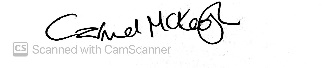 Carmel McKeogh
CS Scanned with CamScanner